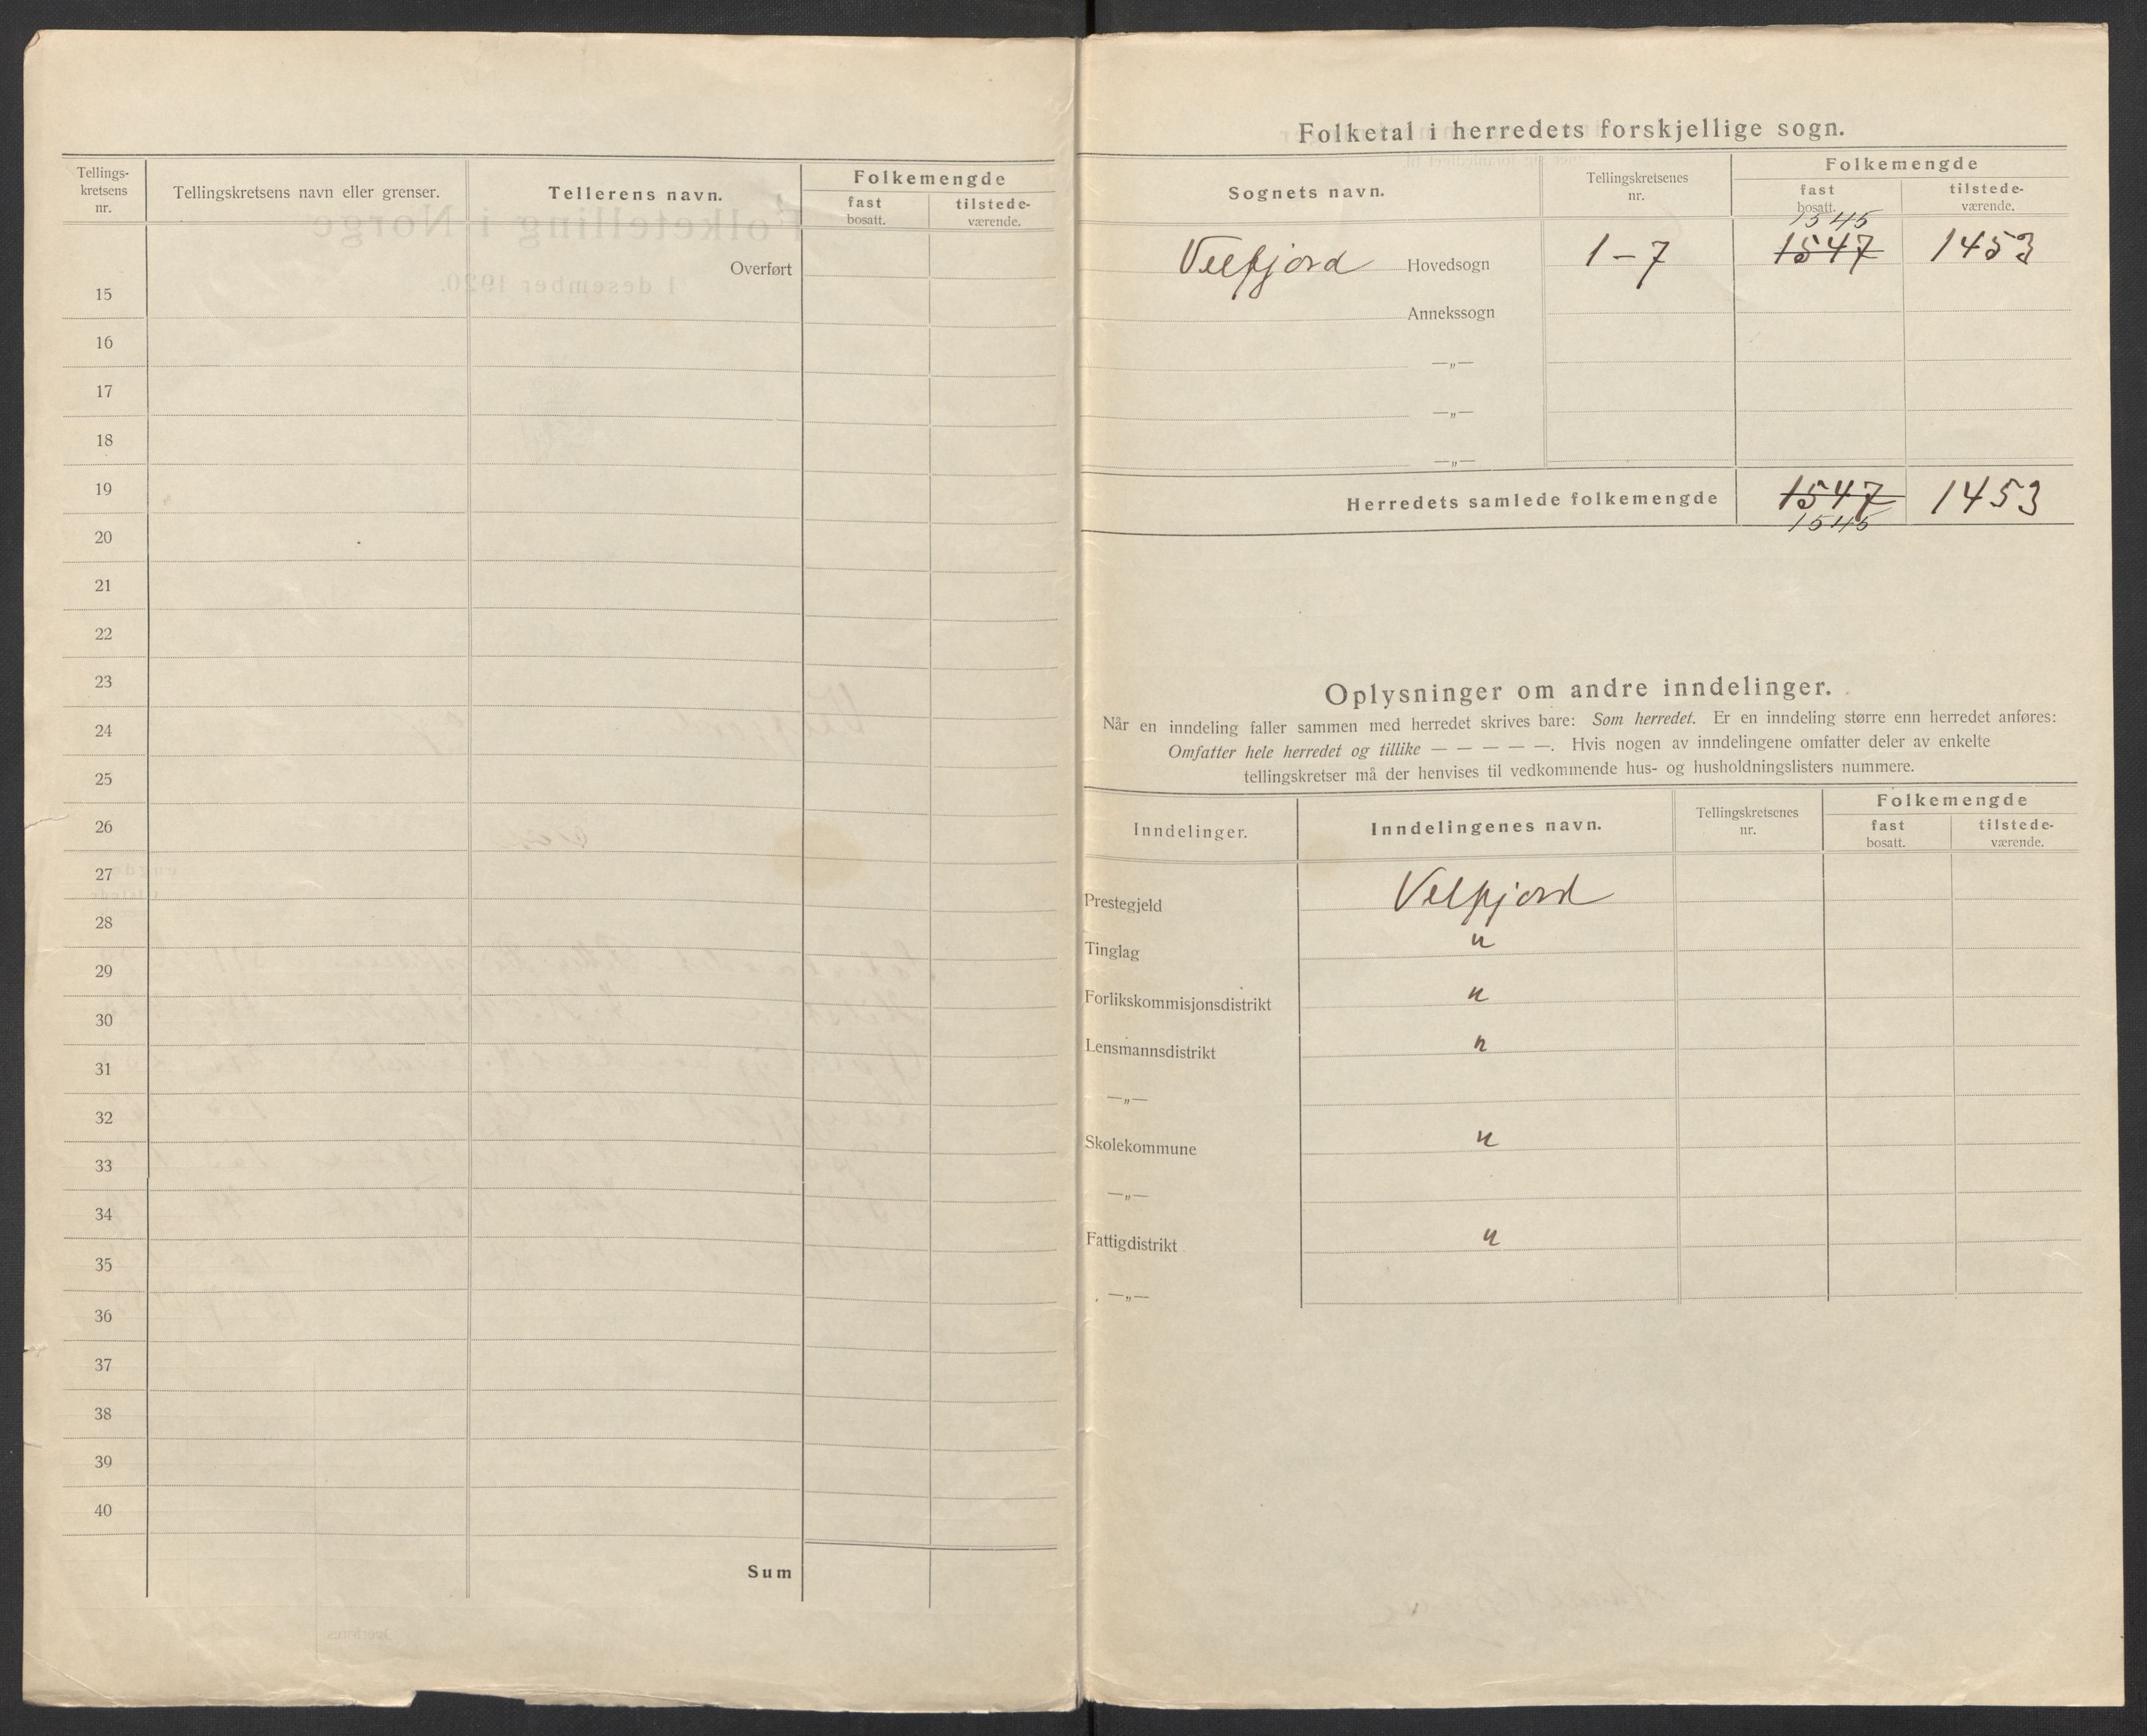 Tellings-
kretsens
nr.
Tellingskretsens navn eller grenser.
Tellerens navn.
Folkemengde
fast
bosatt.
tilstede-
værende.
Overført
15
16
17
18
19
20
21
22
23
24
25
26
27
28
29
30
31
32
33
34
35
36
37
38
39
40
Sum
Folketal i herredets forskjellige sogn.
Sognets navn.
Tellingskretsenes
nr.
Folkemengde
fast
bosatt.
tilstede-
værende.
1545
Velfjord Hovedsogn 1-7 1547 1453
Annekssogn
—„—
—„—
—„—
Herredets samlede folkemengde 1547 1453
1545
Oplysninger om andre inndelinger.
Når en inndeling faller sammen med herredet skrives bare: Som herredet. Er en inndeling større enn herredet anføres:
Omfatter hele herredet og tillike — — — — —. Hvis nogen av inndelingene omfatter deler av enkelte
tellingskretser må der henvises til vedkommende hus- og husholdningslisters nummere.
Inndelinger.
Inndelingenes navn.
Tellingskretsenes
nr.
Folkemengde
fast
bosatt.
tilstede-
værende.
Prestegjeld Velfjord
Tinglag "
Forlikskommisjonsdistrikt "
Lensmannsdistrikt "
—„—
Skolekommune "
—„—
Fattigdistrikt "
—„—